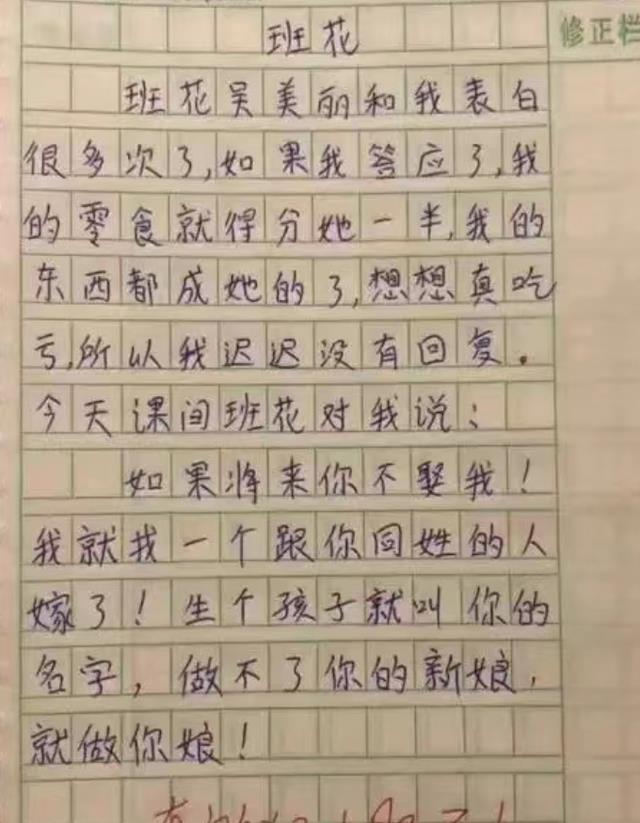 修正栏
班花
班花吴美丽和我表白
很多次了,如果我答应了,我
的零食就得分她一半,我的
东西都成她的了,想想真吃
亏,所以我迟迟没有回复。
今天课间班花对我说:
如果将来你不娶我!
我就找一个跟你同姓的人
嫁了!生个孩子就叫你的
名字,做不了你的新娘,
就做你娘!